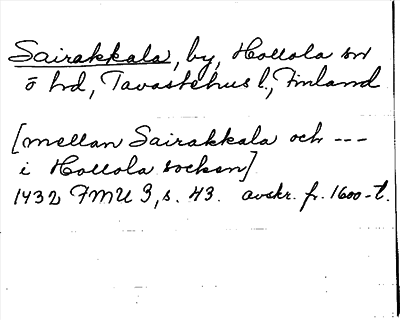 Sairakkala, by, Hollola sn
ö hd, Tavastehus l., Finland
[mellan Sairakkala och ---
i Hollola socken]
1432 FMU 3, s. 43. avskr. fr. 1600-t.